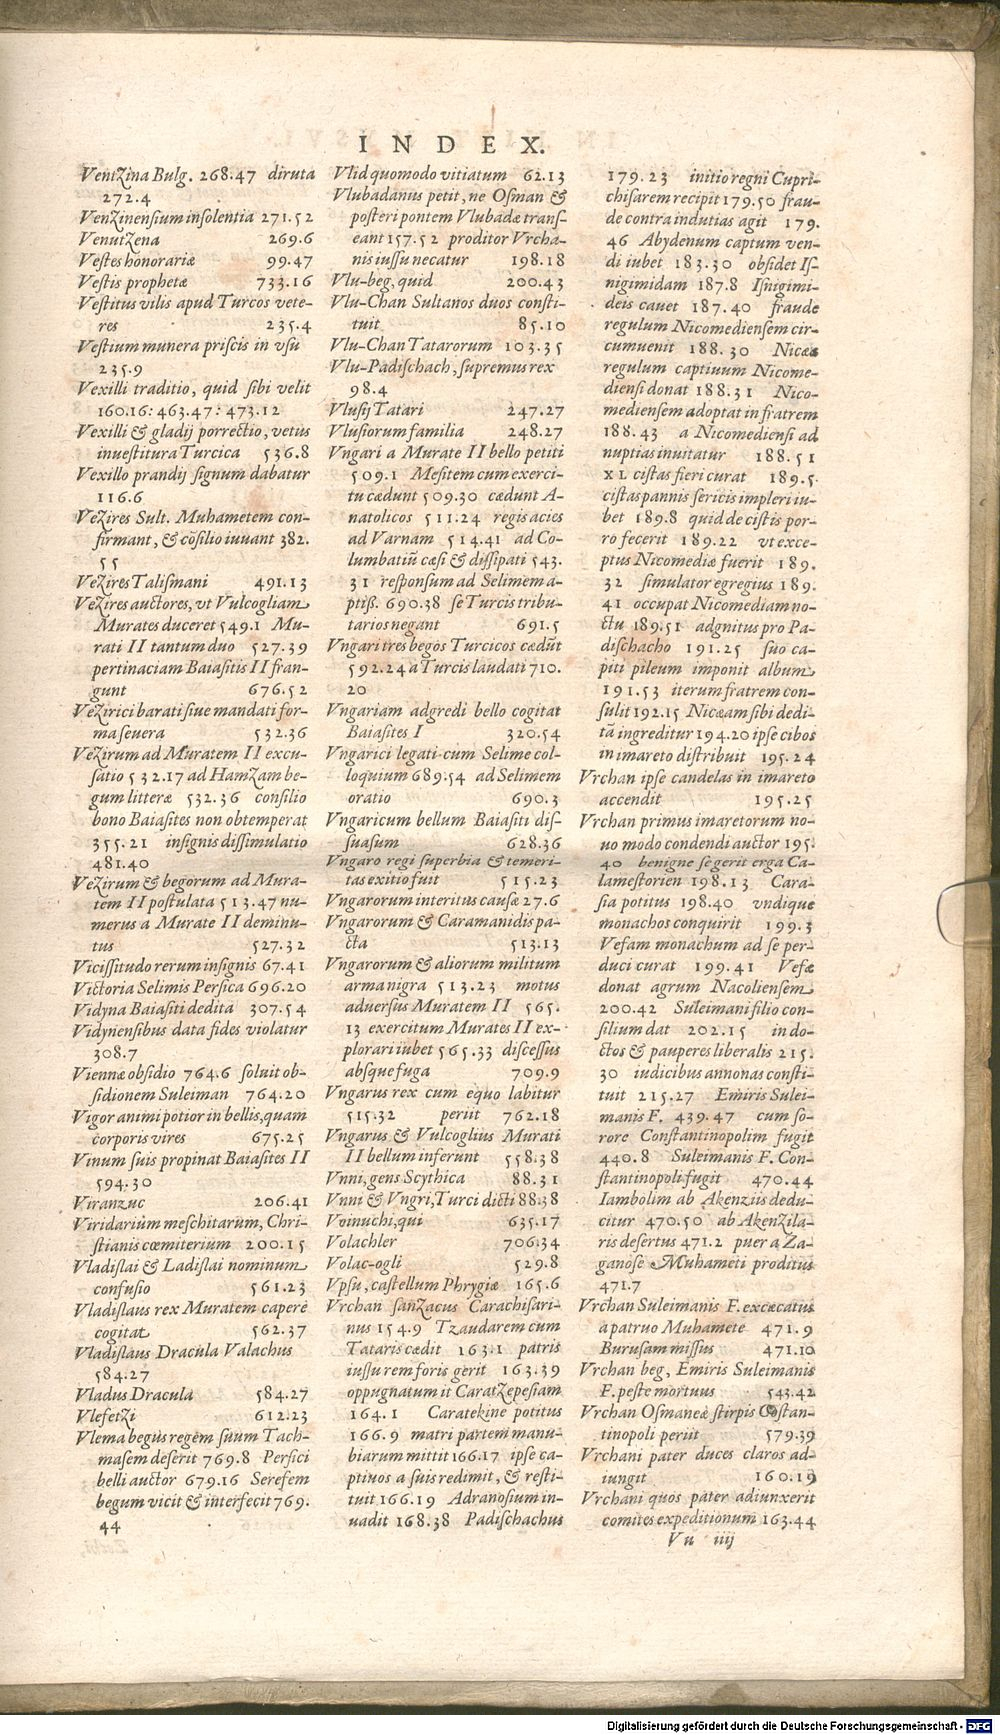 INDEX.
Ventzina Bulg. 268.47 diruta
272.4
Venzinensium insolentia 271.52
Venutzena 269.6
Vestes honorariæ 99.47
Vestis prophetæ 733.16
Vestitus vilis apud Turcos vete-
res 235.4
Vestium munera priscis in vsu
235.9
Vexilli traditio, quid sibi velit
160.16: 463.47: 473.12
Vexilli & gladij porrectio, vetus
inuestitura Turcica 536.8
Vexillo prandij signum dabatur
116.6
Vezires Sult. Muhametem con-
firmant, & cõsilio iuuant 382.
55
Vezires Talismani 491.13
Vezires auctores, vt Vulcogliam
Murates duceret 549.1 Mu-
rati II tantum duo 527.39
pertinaciam Baiasitis II fran-
gunt 676.52
Vezirici barati siue mandati for-
ma seuera 532.36
Vezirum ad Muratem II excu-
satio 532.17 ad Hamzam be-
gum litteræ 532.36 consilio
bono Baiasites non obtemperat
355.21 insignis dissimulatio
481.40
Vezirum & begorum ad Mura-
tem II postulata 513.47 nu-
merus a Murate II deminu-
tus 527.32
Vicissitudo rerum insignis 67.41
Victoria Selimis Persica 696.20
Vidyna Baiasiti dedita 307.54
Vidynensibus data fides violatur
308.7
Viennæ obsidio 764.6 soluit ob-
sidionem Suleiman 764.20
Vigor animi potior in bellis, quam
corporis vires 675.25
Vinum suis propinat Baiasites II
594.30
Viranzuc 206.41
Viridarium meschitarum, Chri-
stianis cœmiterium 200.15
Vladislai & Ladislai nominum
confusio 561.23
Vladislaus rex Muratem capere
cogitat 562.37
Vladislaus Dracula Valachus
584.27
Vladus Dracula 584.27
Vlefetzi 612.23
Vlema begus regem suum Tach-
masem deserit 769.8 Persici
belli auctor 679.16 Serefem
begum vicit & interfecit 769.
44
Vlid quomodo vitiatum 62.13
Vlubadanus petit, ne Osman &
posteri pontem Vlubadæ trans-
eant 157.52 proditor Vrcha-
nis iussu necatur 198.18
Vlu-beg, quid 200.43
Vlu-Chan Sultanos duos consti-
tuit 85.10
Vlu-Chan Tatarorum 103.35
Vlu-Padischach, supremus rex
98.4
Vlusij Tatari 247.27
Vlusiorum familia 248.27
Vngari a Murate II bello petiti
509.1 Mesitem cum exerci-
tu cædunt 509.30 cædunt A-
natolicos 511.24 regis acies
ad Varnam 514.41 ad Co-
lumbatiũ cæsi & dissipati 543.
31 responsum ad Selimem a-
ptiss. 690.38 se Turcis tribu-
tarios negant 691.5
Vngari tres begos Turcicos cædũt
592.24 a Turcis laudati 710.
20
Vngariam adgredi bello cogitat
Baiasites I 320.54
Vngarici legati cum Selime col-
loquium 689.54 ad Selimem
oratio 690.3
Vngaricum bellum Baiasiti dis-
suasum 628.36
Vngaro regi superbia & temeri-
tas exitio fuit 515.23
Vngarorum interitus causæ 27.6
Vngarorum & Caramanidis pa-
cta 513.13
Vngarorum & aliorum militum
arma nigra 513.23 motus
aduersus Muratem II 565.
13 exercitum Murates II ex-
plorari iubet 565.33 discessus
absque fuga 709.9
Vngarus rex cum equo labitur
515.32 periit 762.18
Vngarus & Vulcoglius Murati
II bellum inferunt 558.38
Vnni, gens Scythica 88.31
Vnni & Vngri, Turci dicti 88.38
Voinuchi, qui 635.17
Volachler 706.34
Volac-ogli 529.8
Vpsu, castellum Phrygiæ 165.6
Vrchan sanzacus Carachisari-
nus 154.9 Tzaudarem cum
Tataris cædit 163.1 patris
iussu rem foris gerit 163.39
oppugnatum it Caratzepesiam
164.1 Caratekine potitus
166.9 matri partem manu-
biarum mittit 166.17 ipse ca-
ptiuos a suis redimit, & resti-
tuit 166.19 Adranosium in-
uadit 168.38 Padischachus
179.23 initio regni Cupri-
chisarem recipit 179.50 frau-
de contra indutias agit 179.
46 Abydenum captum ven-
di iubet 183.30 obsidet Is-
nigimidam 187.8 Isnigimi-
deis cauet 187.40 fraude
regulum Nicomediensem cir-
cumuenit 188.30 Nicææ
regulum captiuum Nicome-
diensi donat 188.31 Nico-
mediensem adoptat in fratrem
188.43 a Nicomediensi ad
nuptias inuitatur 188.51
XL cistas fieri curat 189.5
cistas pannis sericis impleri iu-
bet 189.8 quid de cistis por-
ro fecerit 189.22 vt exce-
ptus Nicomediæ fuerit 189.
32 simulator egregius 189.
41 occupat Nicomediam no-
ctu 189.51 adgnitus pro Pa-
dischacho 191.25 suo ca-
piti pileum imponit album
191.53 iterum fratrem con-
sulit 192.15 Nicæam sibi dedi-
tã ingreditur 194.20 ipse cibos
in imareto distribuit 195.24
Vrchan ipse candelas in imareto
accendit 195.25
Vrchan primus imaretorum no-
uo modo condendi auctor 195.
40 benigne se gerit erga Ca-
lamestorien 198.13 Cara-
sia potitus 198.40 vndique
monachos conquirit 199.3
Vefam monachum ad se per-
duci curat 199.41 Vefæ
donat agrum Nacoliensem
200.42 Suleimani filio con-
silium dat 202.15 in do-
ctos & pauperes liberalis 215.
30 iudicibus annonas consti-
tuit 215.27 Emiris Sulei-
manis F. 439.47 cum so-
rore Constantinopolim fugit
440.8 Suleimanis F. Con-
stantinopoli fugit 470.44
Iambolim ab Akenziis dedu-
citur 470.50 ab Akenzila-
ris desertus 471.2 puer a Za-
ganose Muhameti proditus
471.7
Vrchan Suleimanis F. excæcatus
a patruo Muhamete 471.9
Burusam missus 471.10
Vrchan beg, Emiris Suleimanis
F. peste mortuus 543.42
Vrchan Osmaneæ stirpis Cõstan-
tinopoli periit 579.39
Vrchani pater duces claros ad-
iungit 160.19
Vrchani quos pater adiunxerit
comites expeditionum 163.44
Vu iiij
Digitalisierung gefördert durch die Deutsche Forschungsgemeinschaft - DFG